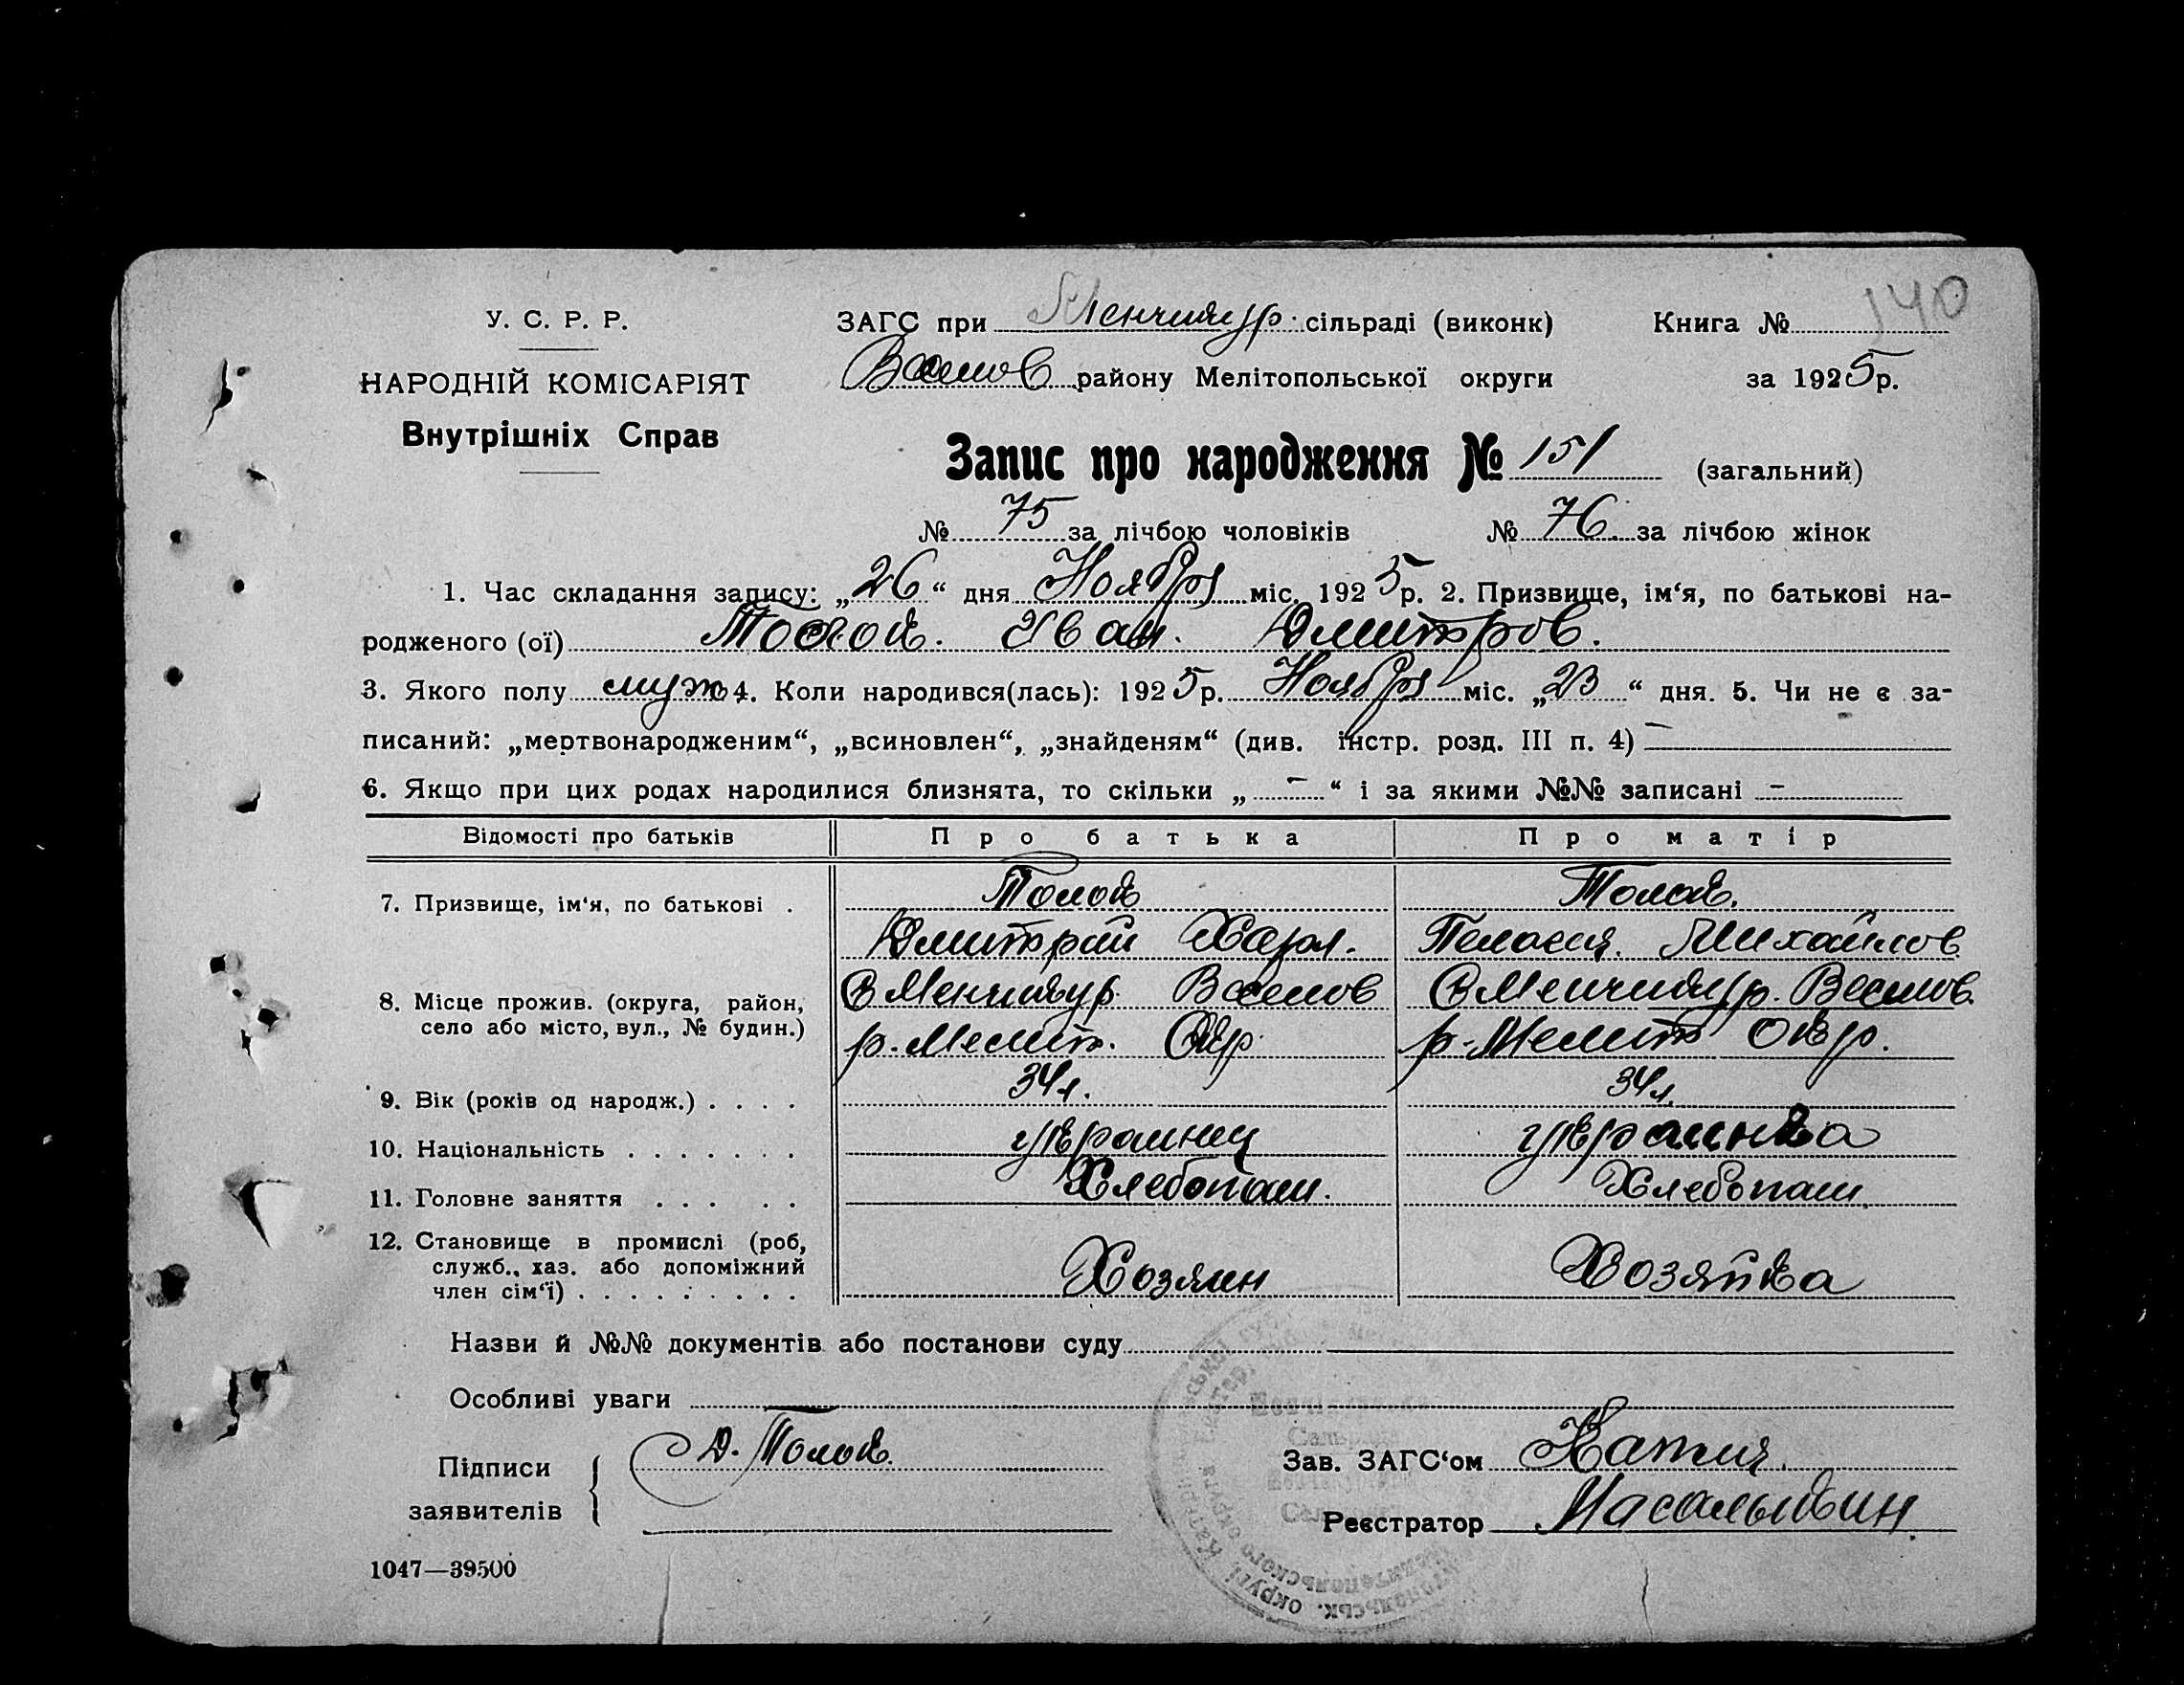 140
У. С. Р. Р.
ЗАГС при Менчикур. сільраді (виконк)
Книга №
НАРОДНІЙ КОМІСАРІЯТ
Весилов району Мелітопольської округи
за 1925 р.
Внутрішніх Справ
Запис про народження № 151 (загальний)
№ 75 за лічбою чоловіків № 76 за лічбою жінок
1. Час складання запису: „26“ дня Ноября міс. 1925 р. 2. Призвище, ім‘я, по батькові на-
родженого (ої) Иван. Дмитров.
3. Якого полу муж 4. Коли народився(лась): 1925 р. Ноября міс. „23“ дня. 5. Чи не є за-
писаний: „мертвонародженим“, „всиновлен“, „знайденям“ (див. інстр. розд. III п. 4) —
6. Якщо при цих родах народилися близнята, то скільки „ — “ і за якими №№ записані —
Відомості про батьків Про батька Про матір
7. Призвище, ім‘я, по батькові . Толок Толок.
Дмитрий Харл. Пелагея. Михайлов
8. Місце прожив. (округа, район, село або місто, вул., № будин.)
С Менчикур. Веселов С Менчикур. Веселов.
р. Мелит. Окр. р. Мелит Окр.
9. Вік (років од народж.) . . . . 34 л. 34 л.
10. Національність . . . . . . . украинец украинка
11. Головне заняття . . . . . Хлебопаш. Хлебопаш
12. Становище в промислі (роб, служб., хаз. або допоміжний член сім‘ї) . . . . . . . . .
Хозяин Хозяйка
Назви й №№ документів або постанови суду
Особливі уваги
Підписи заявителів Д. Толок.
Зав. ЗАГС‘ом
Реєстратор Масалыкин.
1047—39500